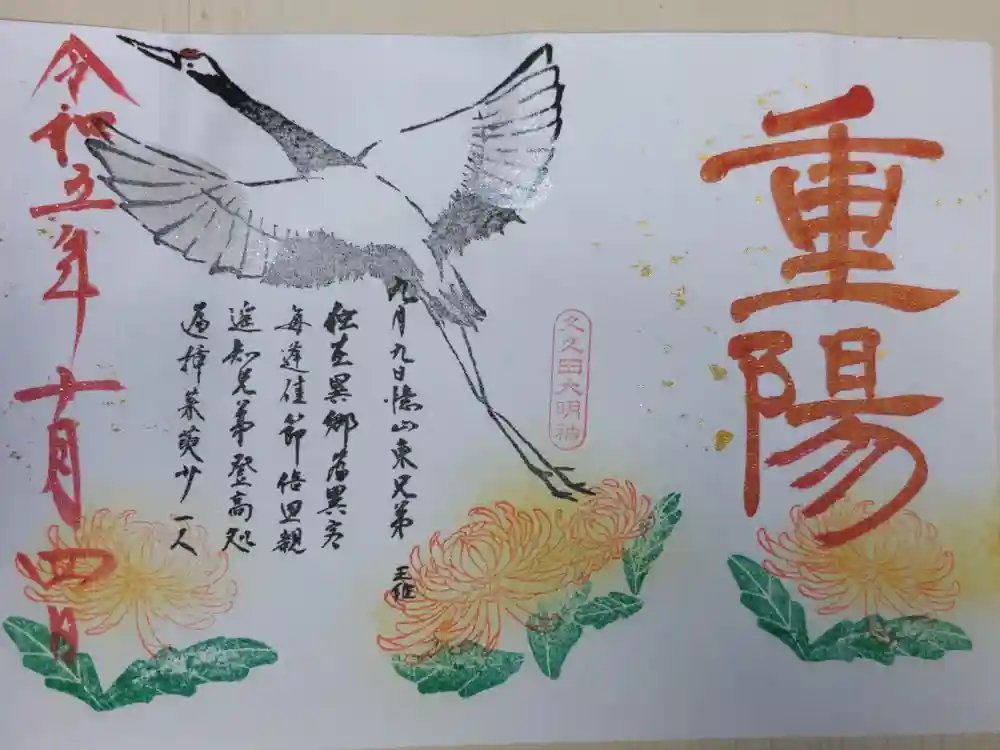 重陽
久久田大明神
九月九日憶山東兄弟 王維
独在異郷為異客
毎逢佳節倍思親
遥知兄弟登高処
遍挿茱萸少一人
令和五年十月四日